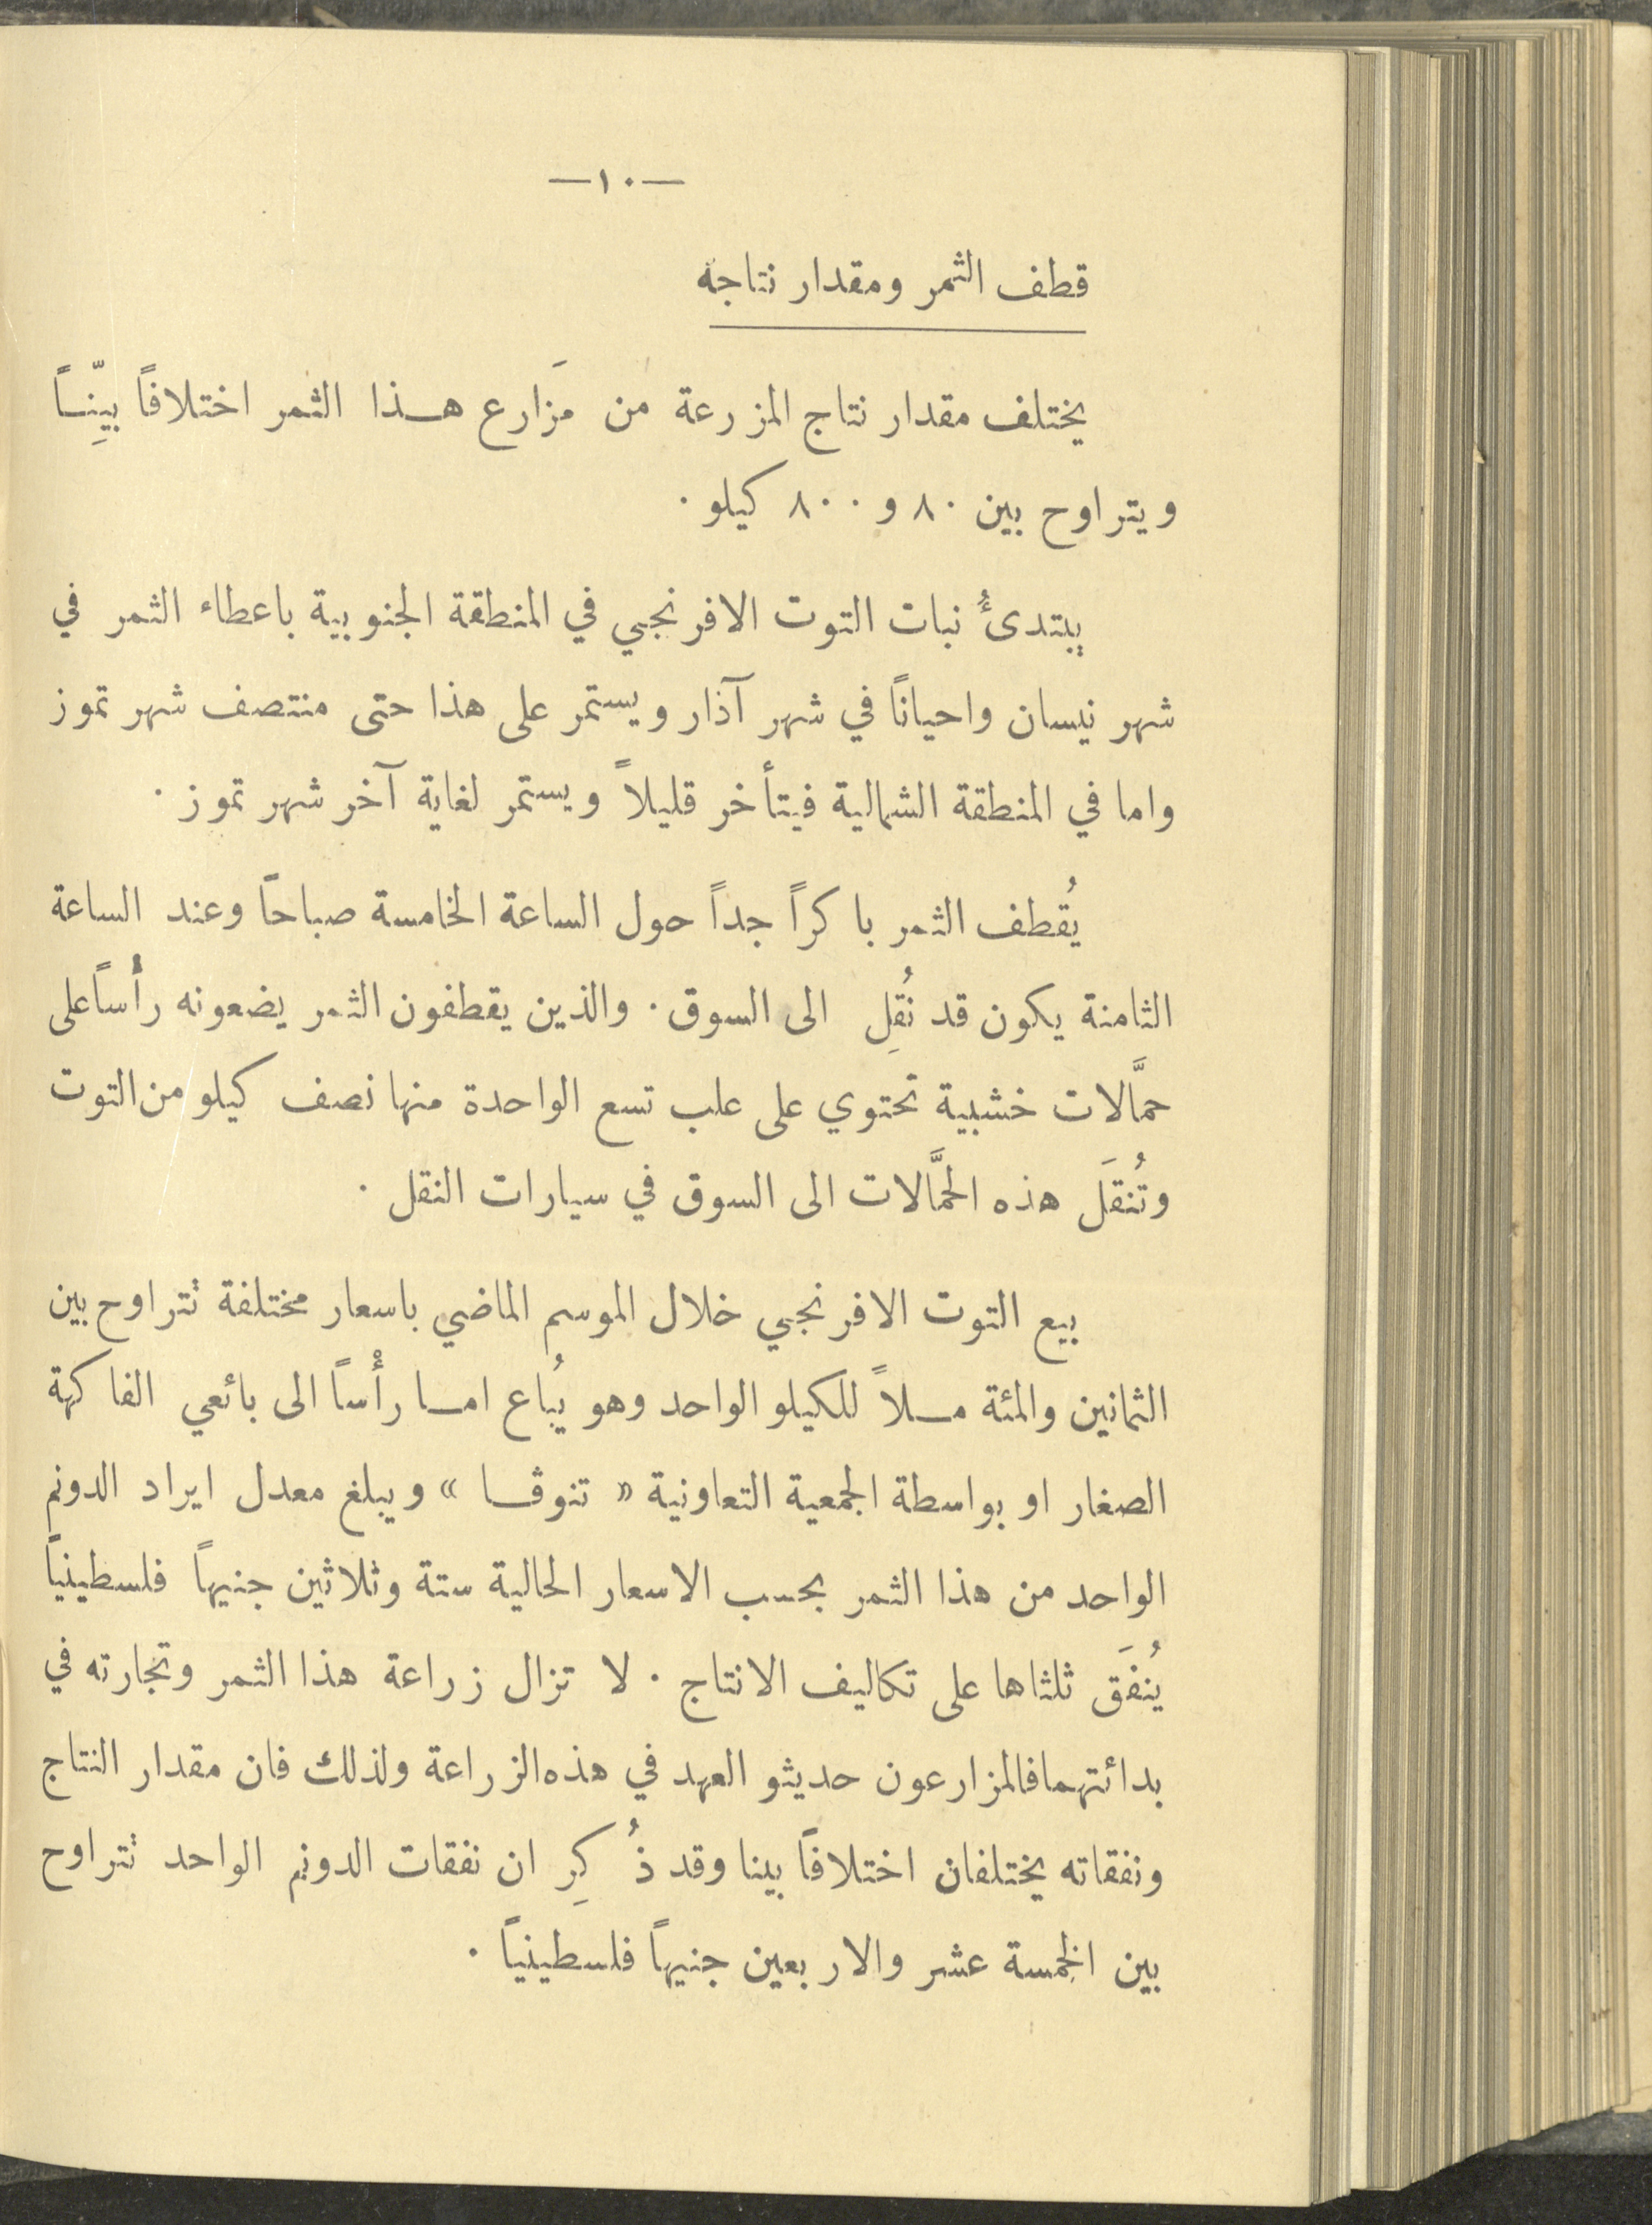 —١٠—
قطف الثمر ومقدار نتاجه
يختلف مقدار نتاج المزرعة من مَزارع هـذا الثمر اختلافاً بيِّنـاً
ويتراوح بين ٨٠ و ٨٠٠ كيلو .
يبتدىُٔ نبات التوت الافرنجي في المنطقة الجنوبية باعطاء الثمر في
شهر نيسان واحياناً في شهر آذار ويستمر على هذا حتى منتصف شهر تموز
واما في المنطقة الشمالية فيتأخر قليلاً ويستمر لغاية آخر شهر تموز .
يُقطف الثمر باكراً جداً حول الساعة الخامسة صباحاً وعند الساعة
الثامنة يكون قد نُقِل الى السوق . والذين يقطفون الثمر يضعونه رأساً على
حمَّالات خشبية تحتوي على علب تسع الواحدة منها نصف كيلو من التوت
وتُنقَل هذه الحمَّالات الى السوق في سيارات النقل .
بيع التوت الافرنجي خلال الموسم الماضي باسعار مختلفة تتراوح بين
الثمانين والمئة مـلاً للكيلو الواحد وهو يُباع امـا رأْساً الى بائعي الفاكهة
الصغار او بواسطة الجمعية التعاونية « تنوڤـا » ويبلغ معدل ايراد الدونم
الواحد من هذا الثمر بحسب الاسعار الحالية ستة وثلاثين جنيهاً فلسطينياً
يُنفَق ثلثاها على تكاليف الانتاج . لا تزال زراعة هذا الثمر وتجارته في
بدائتهما فالمزارعون حديثو العهد في هذه الزراعة ولذلك فان مقدار النتاج
ونفقاته يختلفان اختلافاً بينا وقد ذُكِر ان نفقات الدونم الواحد تتراوح
بين الخمسة عشر والاربعين جنيهاً فلسطينياً .